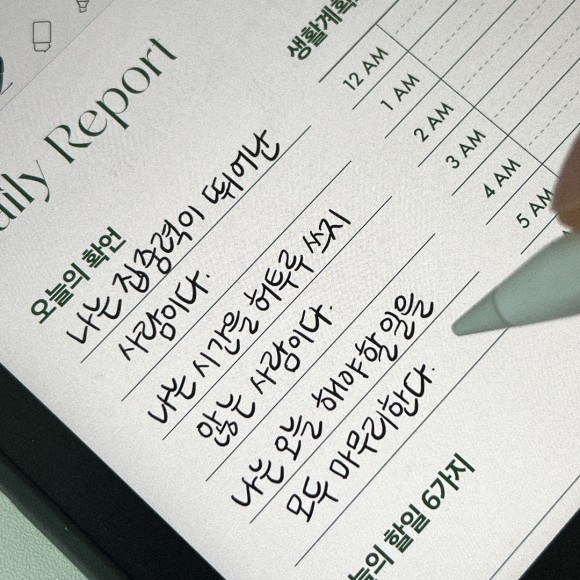 Daily Report
오늘의 확언
나는 집중력이 뛰어난
사람이다.
나는 시간을 허투루 쓰지
않는 사람이다.
나는 오늘 해야할 일을
모두 마무리한다.
늘의 할일 6가지
생활계획
12 AM
1 AM
2 AM
3 AM
4 AM
5 AM